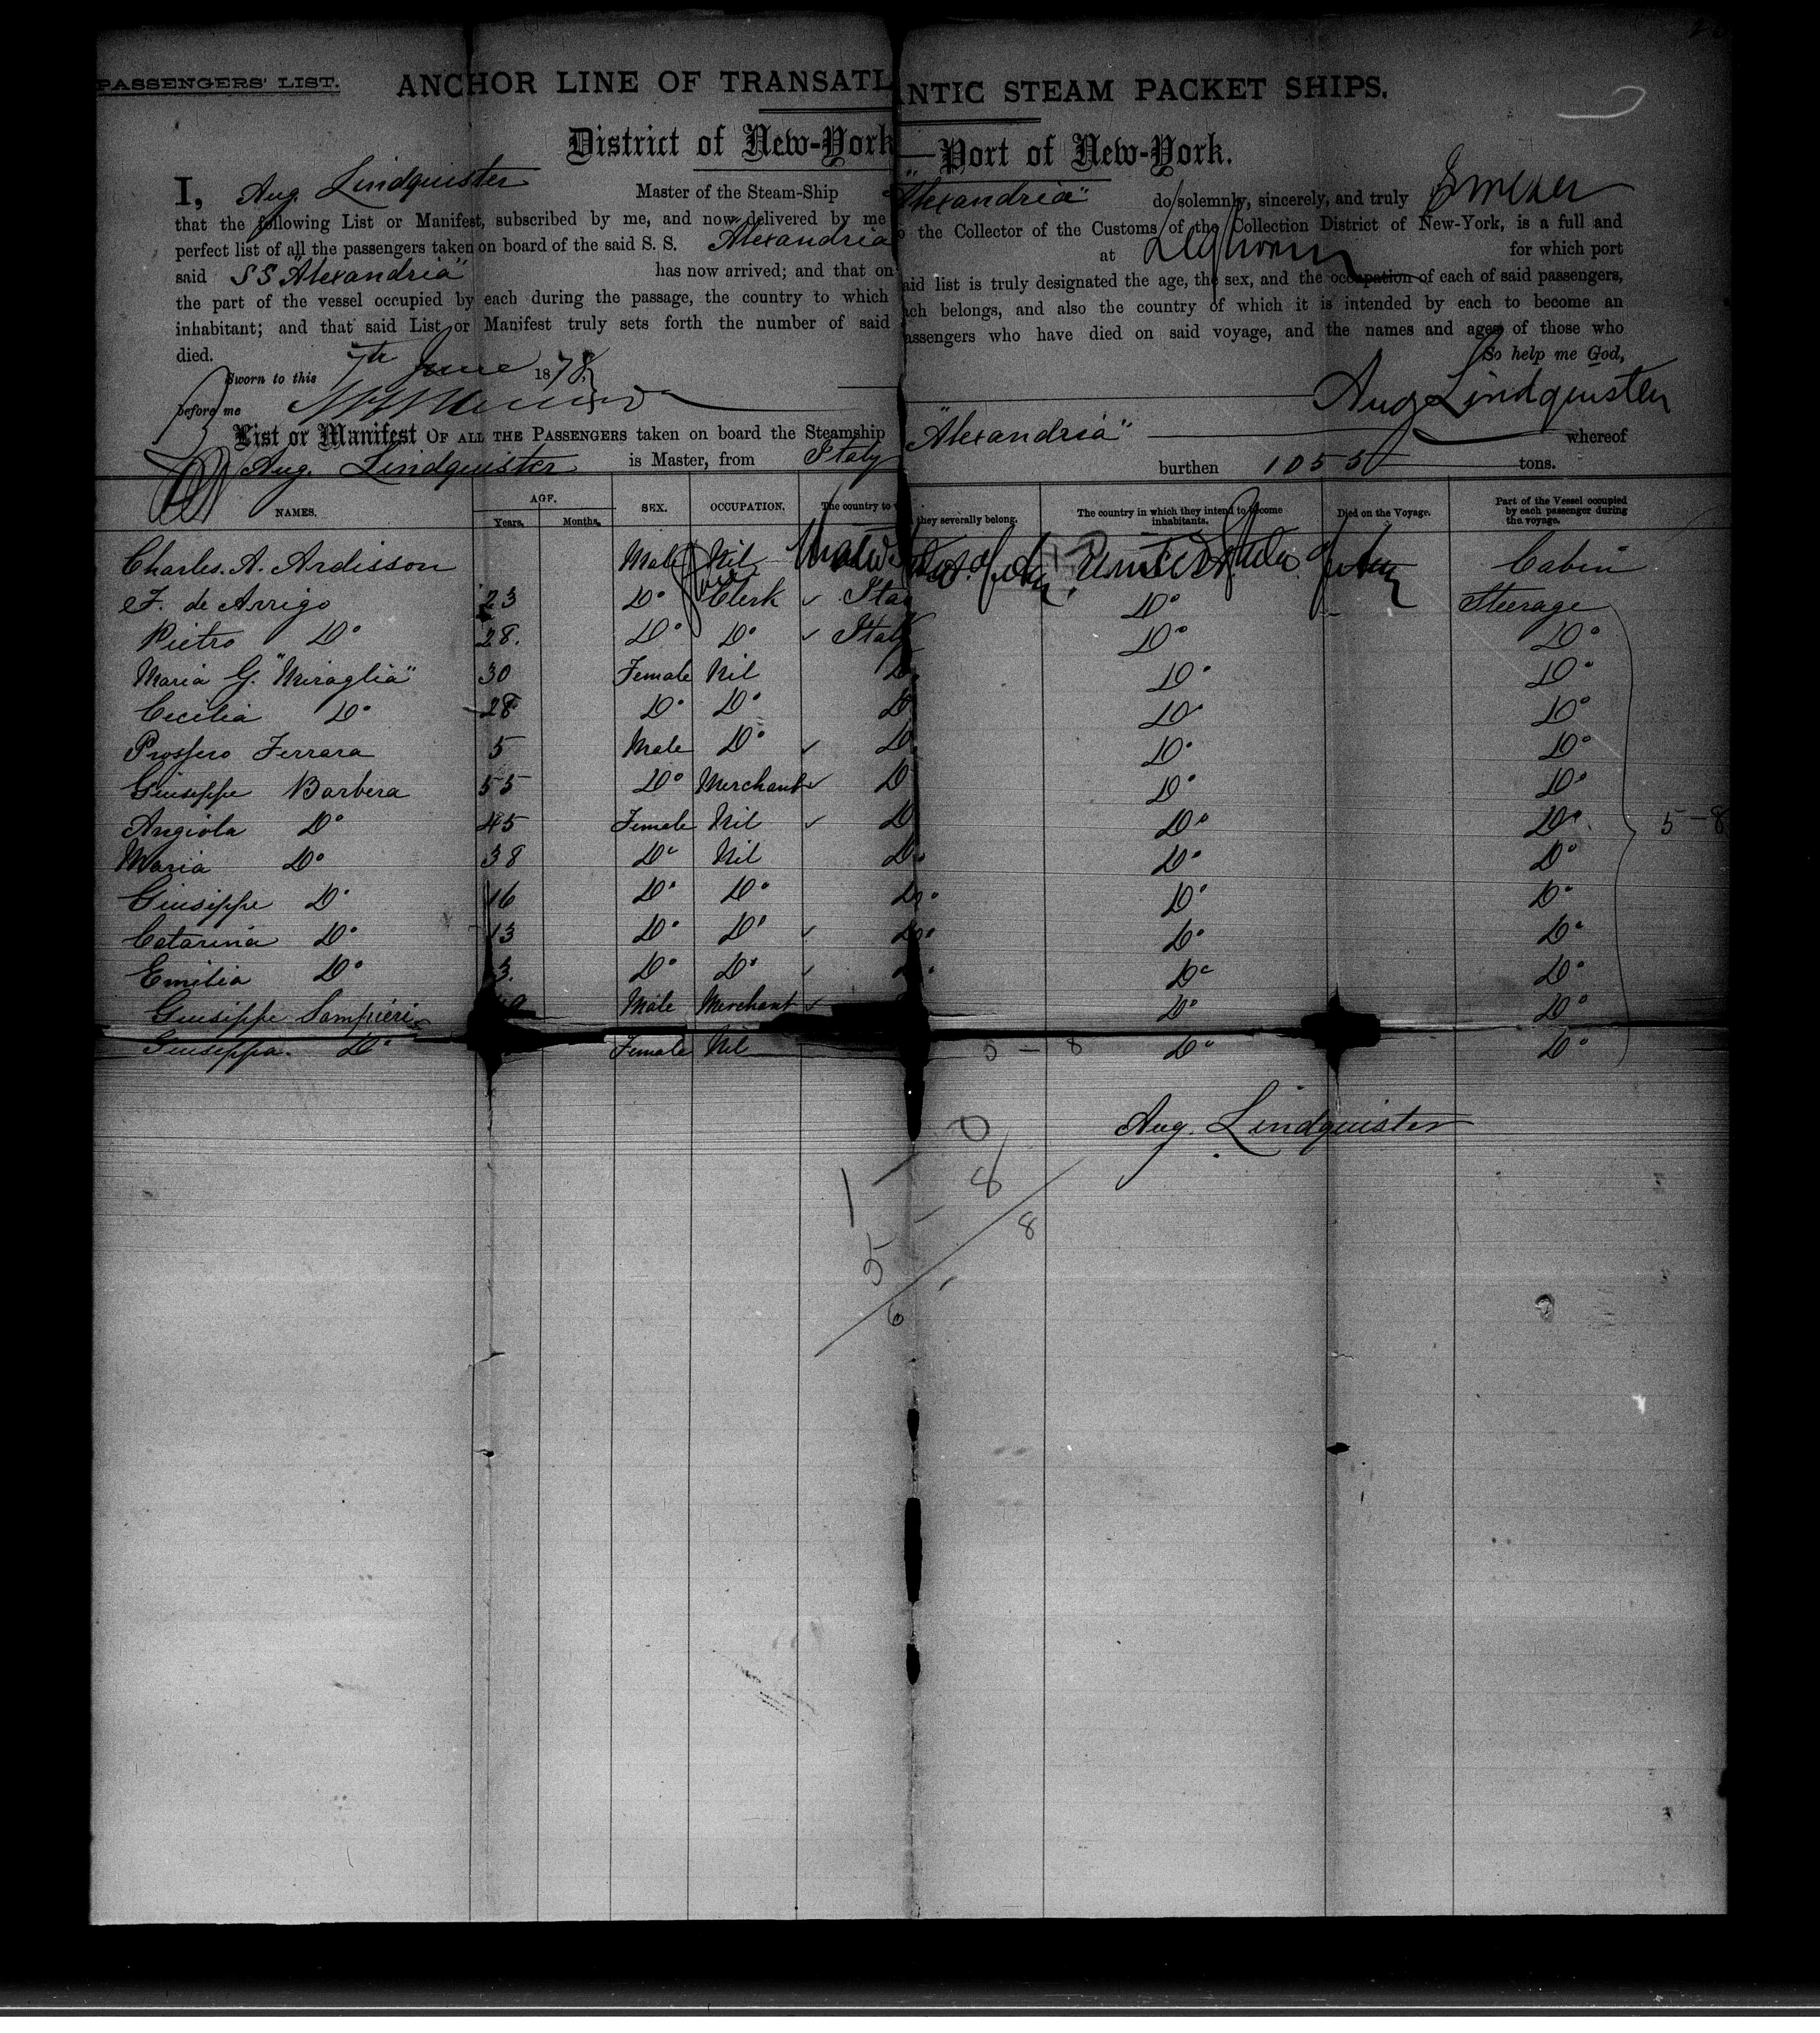 PASSENGERS' LIST.
ANCHOR LINE OF TRANSATLANTIC STEAM PACKET SHIPS.
District of New-York—Port of New-York.
I, Aug. Lindquister Master of the Steam-Ship "Alexandria" do solemnly, sincerely, and truly Swear
that the following List or Manifest, subscribed by me, and now delivered by me to the Collector of the Customs of the Collection District of New-York, is a full and
perfect list of all the passengers taken on board of the said S. S. Alexandria at Leghorn for which port
said SS "Alexandria" has now arrived; and that on said list is truly designated the age, the sex, and the occupation of each of said passengers,
the part of the vessel occupied by each during the passage, the country to which each belongs, and also the country of which it is intended by each to become an
inhabitant; and that said List or Manifest truly sets forth the number of said passengers who have died on said voyage, and the names and ages of those who
died. So help me God,
Sworn to this 7th June 1878
before me Aug Lindquister
List or Manifest OF ALL THE PASSENGERS taken on board the Steamship "Alexandria" whereof
Aug. Lindquister is Master, from Italy burthen 1055 tons.
NAMES. AGE. Years. Months. SEX. OCCUPATION. The country to which they severally belong. The country in which they intend to become inhabitants. Died on the Voyage. Part of the Vessel occupied by each passenger during the voyage.
Charles. A. Ardisson Male Nil United States of Am. United States of Am Cabin
F. de Arrigo 23 Do Clerk ✓ Italy Do Steerage
Pietro Do 28. Do Do ✓ Italy Do Do
Maria G. "Miraglia" 30 Female Nil Do Do Do
Cecilia Do 28 Do Do Do Do Do
Prospero Ferrara 5 Male Do ✓ Do Do Do
Giuseppe Barbera 55 Do Merchant ✓ Do Do Do
Angiola Do 45 Female Nil ✓ Do Do Do 5-8
Maria Do 38 Do Nil Do Do Do
Giuseppe Do 16 Do Do Do Do Do
Catarina Do 13 Do Do ✓ Do Do Do
Emilia Do 3. Do Do ✓ Do Do Do
Giuseppe Sampieri Male Merchant ✓ Do Do
Giuseppa. Do Female Nil 5 - 8 Do Do
Aug. Lindquister
1 - 0
5 - 8
6 - 8